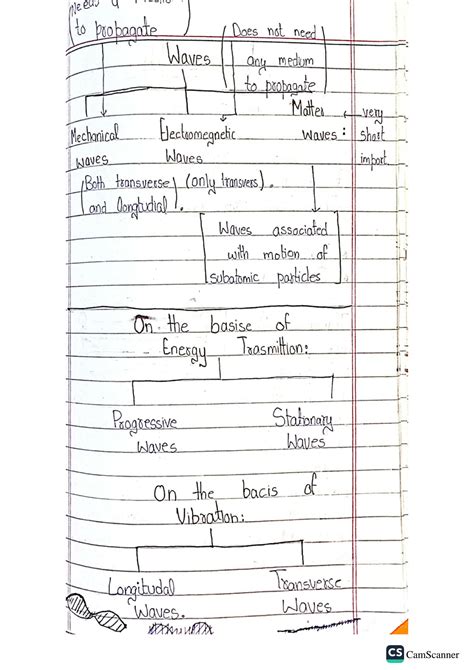 to propagate
Does not need
any medum
to propagate
Waves
Mechanical
waves
Electromegnetic
Waves
Matter
waves:
very
short
import
(Both transverse
and longtudial).
(only transvers).
Waves associated
with motion of
subatomic particles
On the basise of
Energy Trasmittion:
Progressive
Waves
Stationary
Waves
On the bacis of
Vibration:
Longitudal
Waves.
Transverse
Waves
CS CamScanner